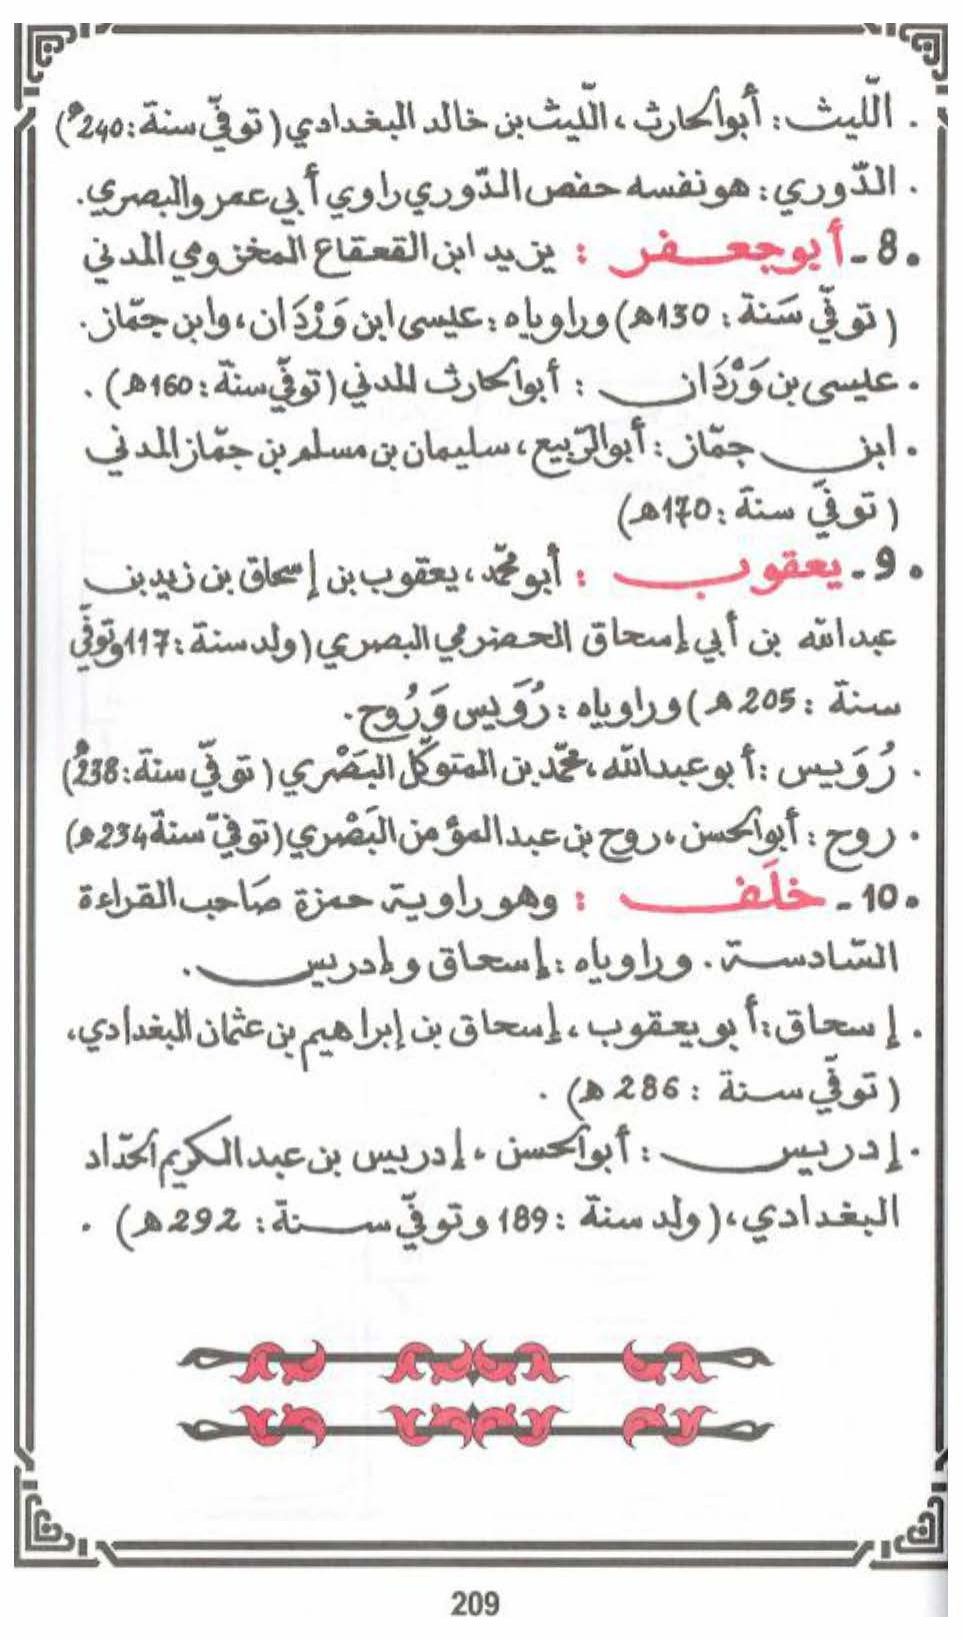 . اللّيث : أبو الحارث ، اللّيث بن خالد البغدادي ( توفّي سنة : 240هـ)
. الدّوري : هو نفسه حفص الدّوري راوي أبي عمرو البصري .
. 8 - أبو جعفر : يزيد ابن القعقاع المخزومي المدني
( توفّي سَنة : 130هـ) وراوياه : عيسى ابن وَرْدَان ، وابن جمّاز .
. عيسى بن وَرْدَان : أبو الحارث المدني ( توفّي سنة : 160هـ) .
. ابن جمّاز : أبو الرّبيع ، سليمان بن مسلم بن جمّاز المدني
( توفّي سنة : 170هـ)
. 9 - يعقوب : أبو محمّد ، يعقوب بن إسحاق بن زيد بن
عبد الله بن أبي إسحاق الحضرمي البصري ( ولد سنة : 117 وتوفّي
سنة : 205هـ) وراوياه : رُوَيس وَرُوح .
. رُوَيس : أبو عبد الله ، محمّد بن المتوكّل البَصْري ( توفّي سنة : 238هـ)
. روح : أبو الحسن ، روح بن عبد المؤمن البَصْري ( توفيّ سنة 234هـ)
. 10 - خلَف : وهو راوية حمزة صَاحب القراءة
السّادسة . وراوياه : إسحاق وإدريس .
. إسحاق : أبو يعقوب ، إسحاق بن إبراهيم بن عثمان البغدادي ،
( توفّي سنة : 286هـ) .
. إدريس : أبو الحسن ، إدريس بن عبد الكريم الحدّاد
البغدادي ، ( ولد سنة : 189 وتوفّي سنة : 292هـ) .
209